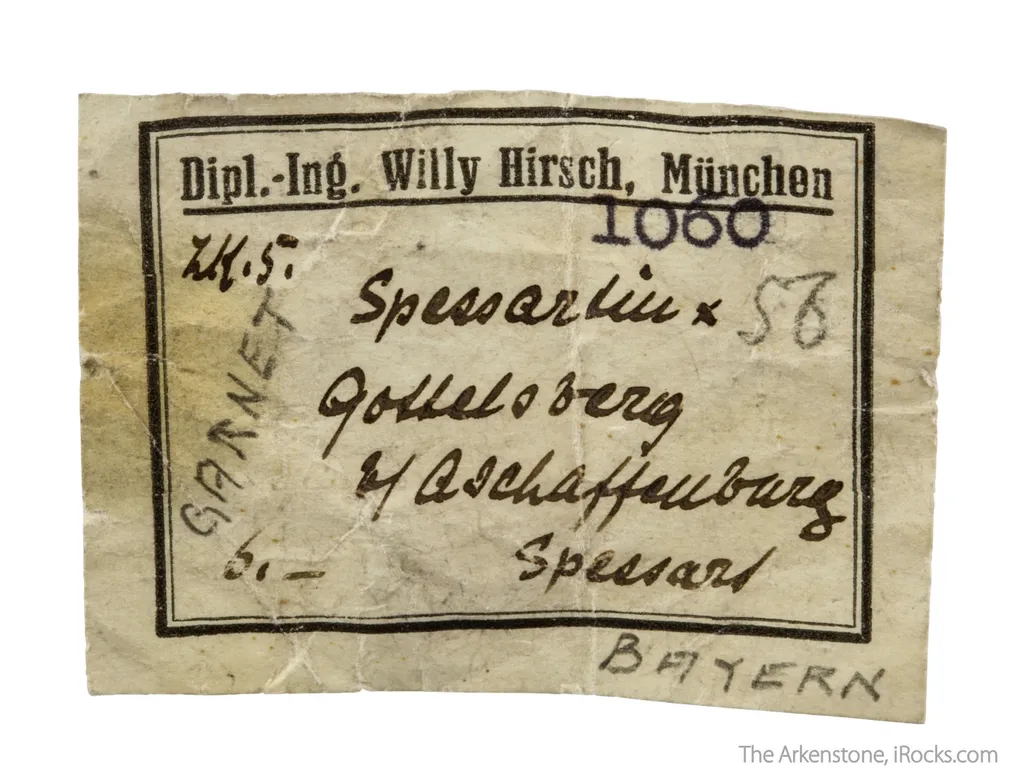 Dipl.-Ing. Willy Hirsch, München
1060
ZK.5.
Spessartin x
56
GARNET
Gottelsberg
b/Aschaffenburg
6.– Spessart
BAYERN
The Arkenstone, iRocks.com